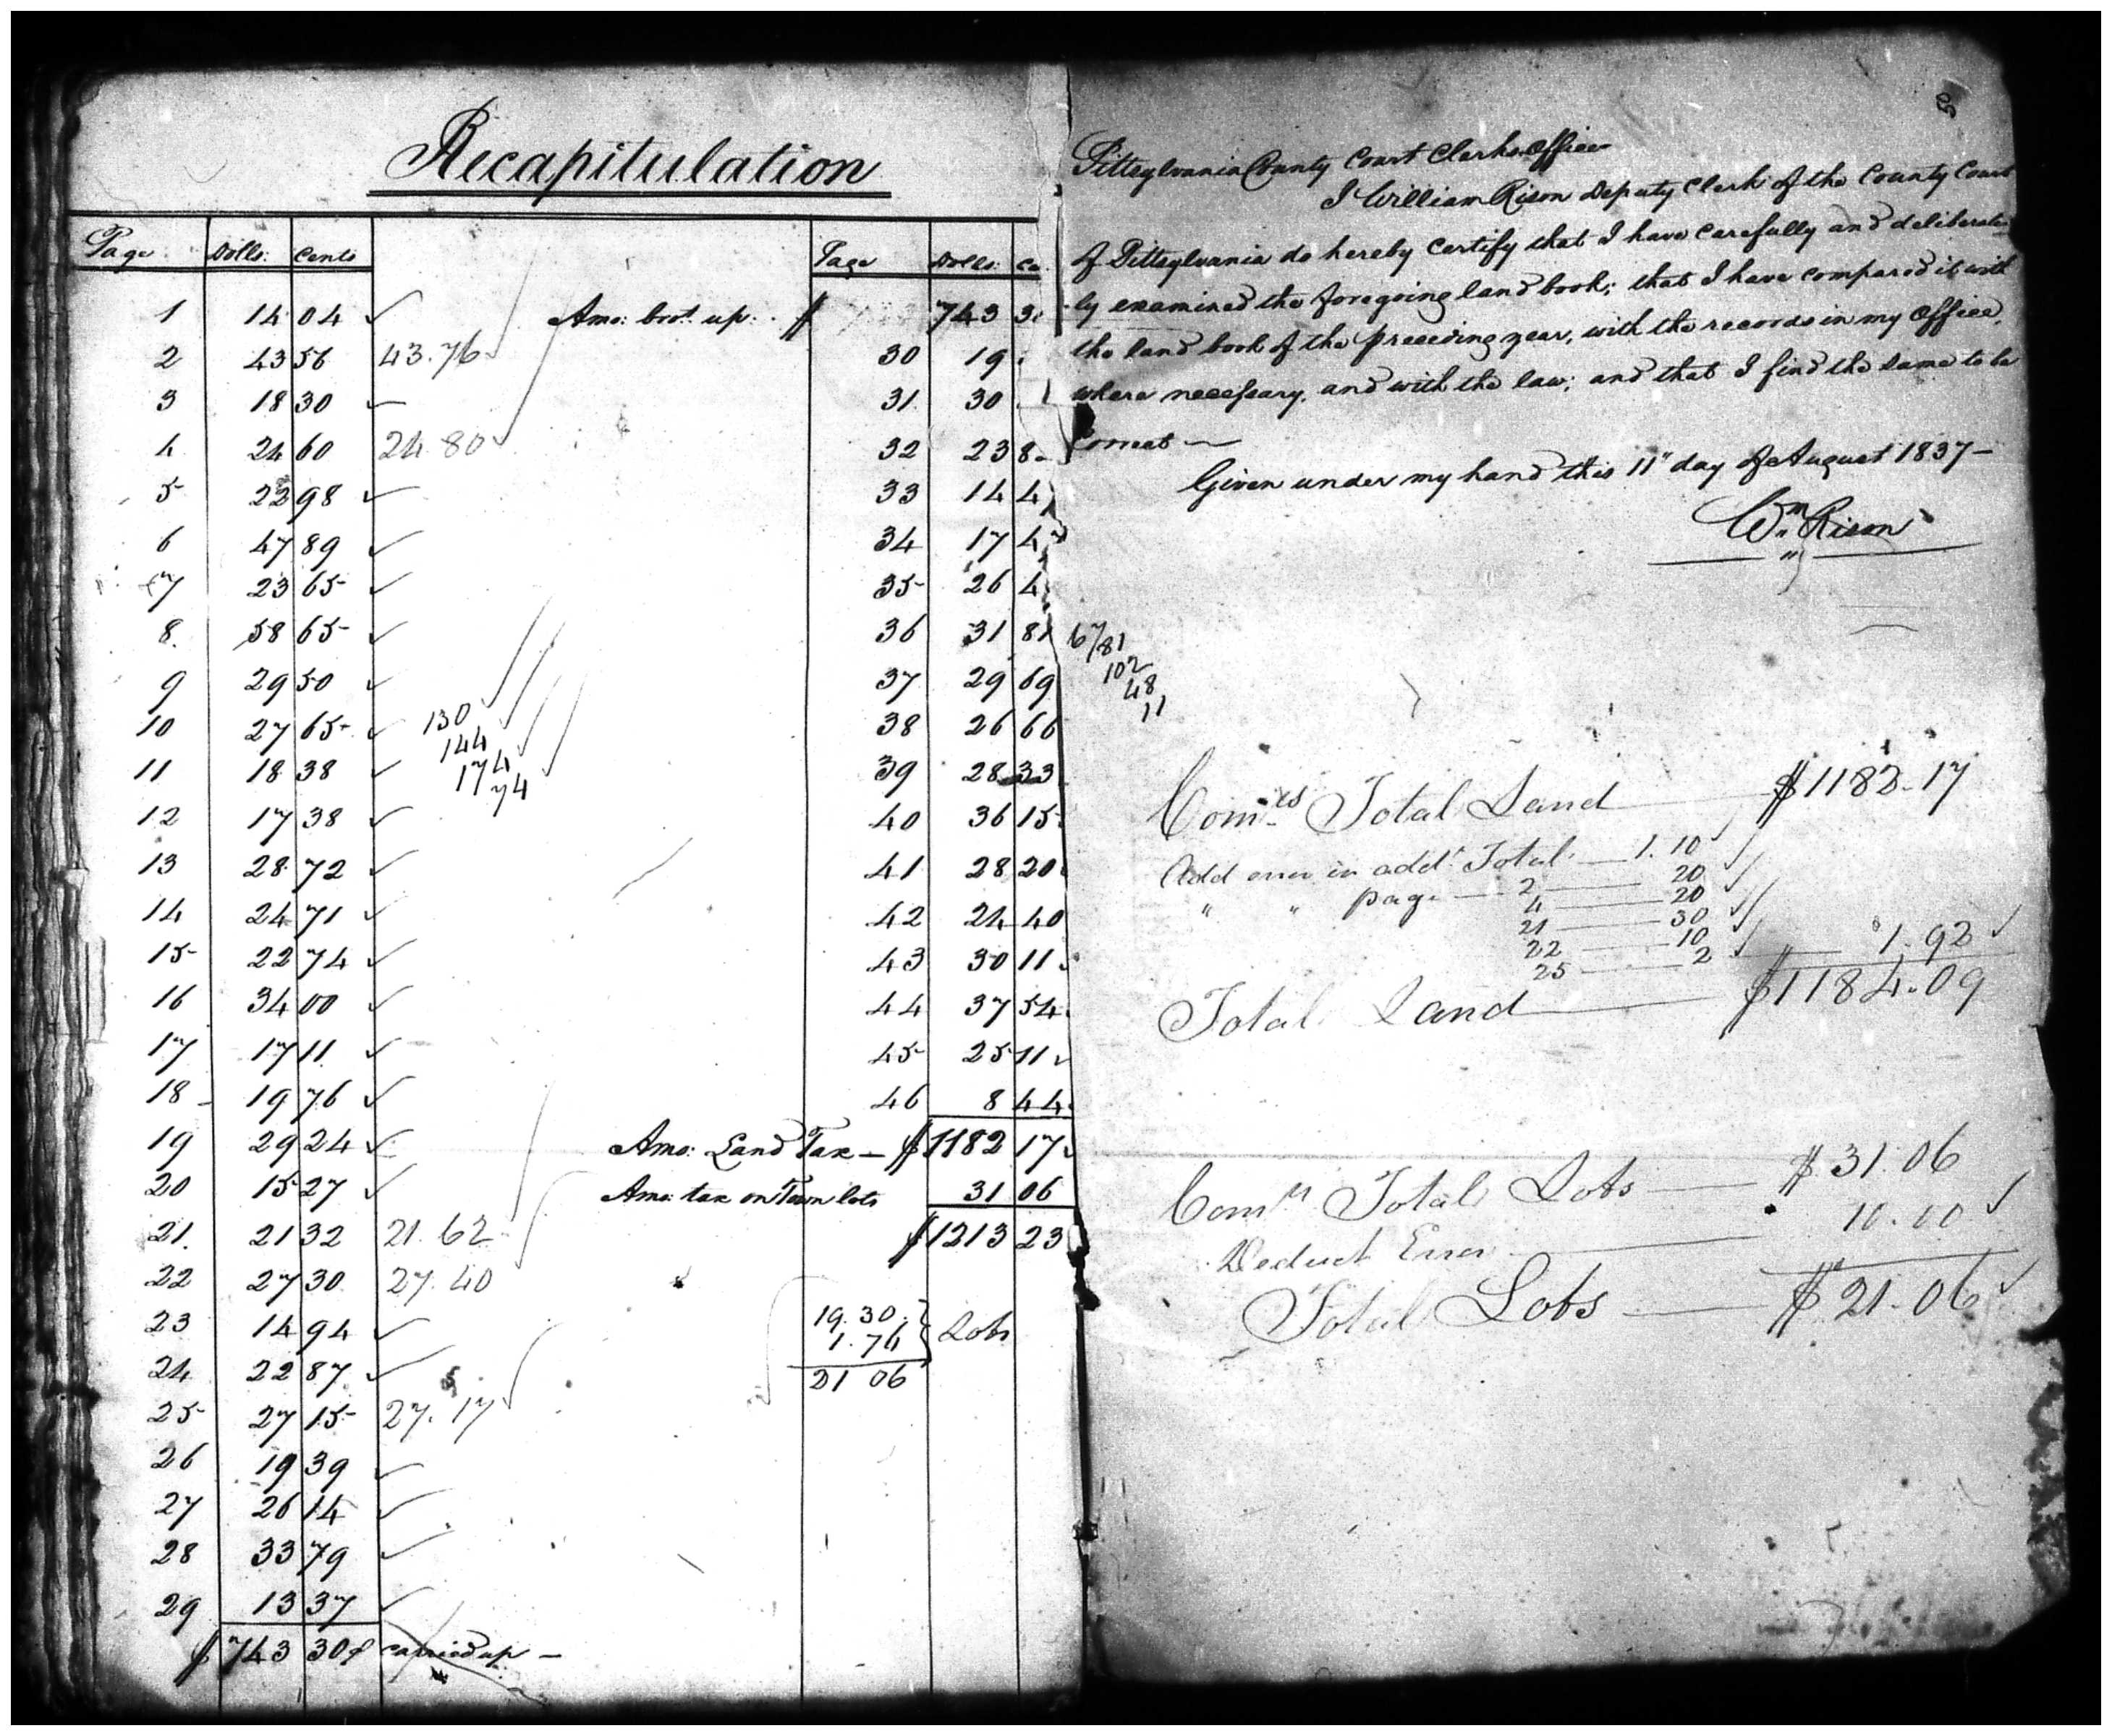 Recapitulation
Page Dolls: Cents
1 14 04 ✓
2 43 56 43.76 ✓
3 18 30 ✓
4 24 60 24.80 ✓
5 22 98 ✓
6 47 89 ✓
7 23 65 ✓
8. 58 65 ✓
9 29 50 ✓
10 27 65 ✓
11 18 38 ✓
12 17 38 ✓
13 28 72 ✓
14 24 71 ✓
15 22 74 ✓
16 34 00 ✓
17 17 11 ✓
18 19 76 ✓
19 29 24 ✓
20 15 27 ✓
21. 21 32 21.62
22 27 30 27.40
23 14 94 ✓
24 22 87 ✓
25 27 15 27.17 ✓
26 19 39 ✓
27 26 14 ✓
28 33 79 ✓
29 13 37 ✓
$ 743 30 carried up —
130 ✓
144 ✓
174 ✓
74 ✓
Page Dolls: Ce
Amo: brot. up: $ 743
30 19
31. 30
32 23 8
33 14 4
34 17 4
35 26 4
36 31 81
37 29 69
38 26 66
39 28 33
40 36 15
41 28 20
42 24 40
43 30 11
44 37 54
45 25 11 ✓
46 8 44
Amo: Land Tax — $1182 17
Amo: tax on Town lots 31 06
$1213 23
19.30
1.76 } Lots
21 06
Pittsylvania County Court Clerks Office
I William Rison Deputy Clerk of the County Court
of Pittsylvania do hereby certify that I have carefully and deliberate
ly examined the foregoing land book; that I have compared it with
the land book of the preceeding year, with the records in my office,
where necessary, and with the law; and that I find the same to be
Correct —
Given under my hand this 11" day of August 1837 —
Wm. Rison
67/81
102
48
11
Comrs Total Land $1182.17
Add error in addt. Total — 1.10 ✓
" " page — 2 — 20 ✓
4 — 20 ✓
21 — 30 ✓
22 — 10 ✓
25 — 2 ✓ — 1.92 ✓
Total Land — $1184.09
Comrs Total Lots — $31.06
Deduct Error — 10.00 ✓
Total Lots — $21.06 ✓